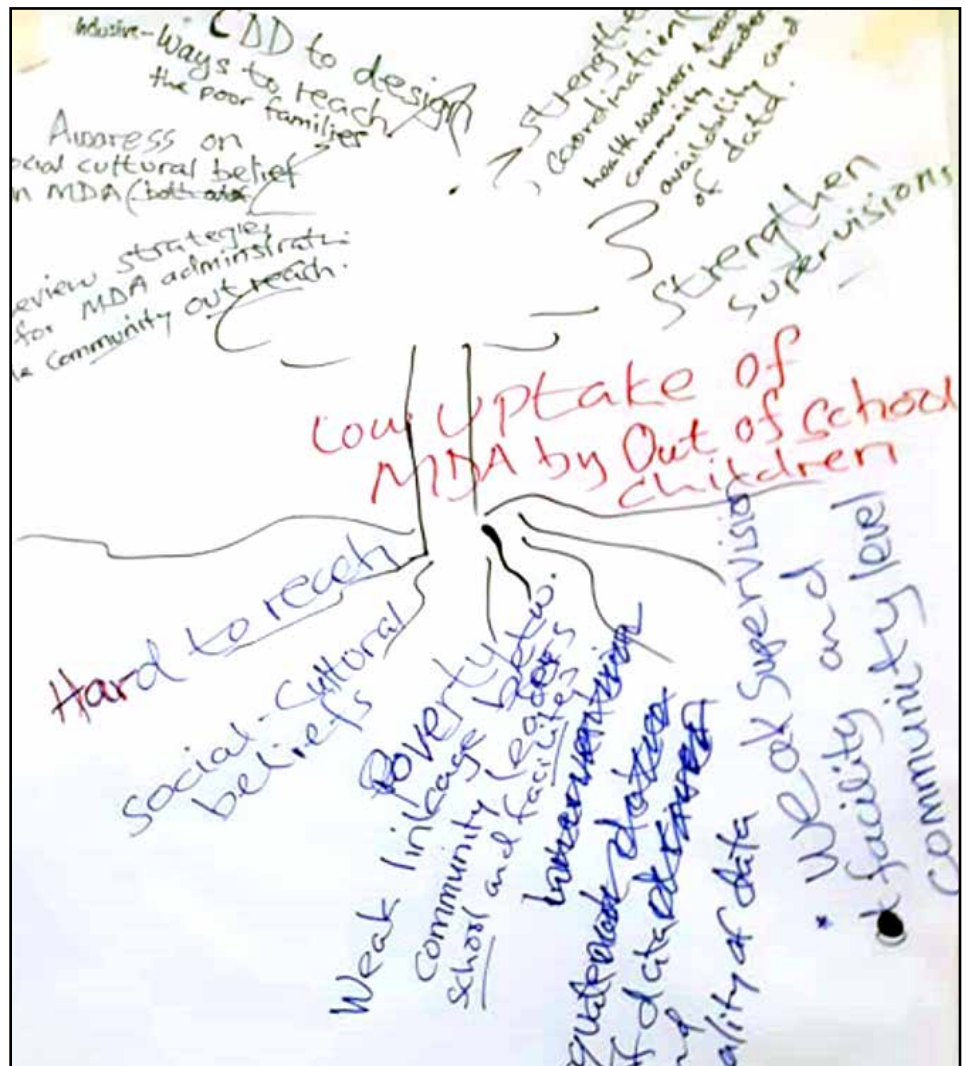 Inclusive - Ways to reach
the poor families
CDD to design
Awaress on
ocial cultural belief
n MDA (both
eview strategies
for MDA adminstrati
community out reach.
Strengthe
coordination
health workers, teac
community leader
availability and
of data.
Strengthen
supervisions
Low Uptake of
MDA by Out of School
children
Hard to reach
Social-Cultural
beliefs
Poverty
Weak linkage betw.
community leaders
school and facilites
quate
of data
nd
ality of data
* Weak Supervision
facility and
community level